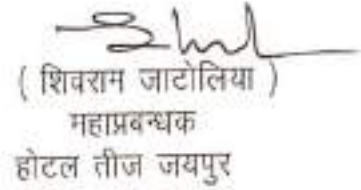 ( शिवराम जाटोलिया )
महाप्रबन्धक
होटल तीज जयपुर